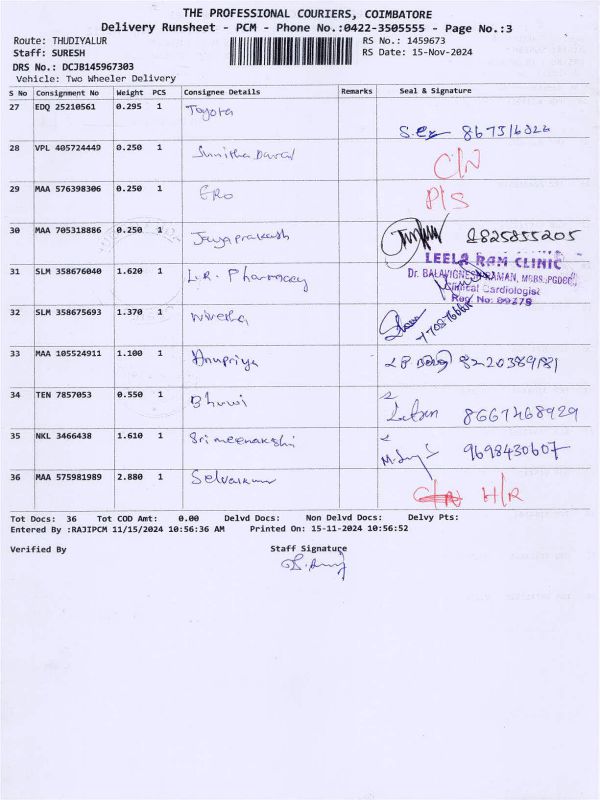 THE PROFESSIONAL COURIERS, COIMBATORE
Delivery Runsheet - PCM - Phone No.:0422-3505555 - Page No.:3
Route: THUDIYALUR RS No.: 1459673
Staff: SURESH RS Date: 15-Nov-2024
DRS No.: DCJB145967303
Vehicle: Two Wheeler Delivery
S No Consignment No Weight PCS Consignee Details Remarks Seal & Signature
27 EDQ 25210561 0.295 1 Toyota
28 VPL 405724449 0.250 1 C/N
29 MAA 576398306 0.250 1 P/S
30 MAA 705318886 0.250 1 Jayaprakash
LEELA RAM CLINIC
31 SLM 358676040 1.620 1 L.R. Pharmacy
Clinical Cardiologist
32 SLM 358675693 1.370 1
33 MAA 105524911 1.100 1 Anupriya
34 TEN 7857053 0.550 1 8667468929
35 NKL 3466438 1.610 1 Srimeenakshi 9698430607
36 MAA 575981989 2.880 1 Selvakumar H/R
Tot Docs: 36 Tot COD Amt: 0.00 Delvd Docs: Non Delvd Docs: Delvy Pts:
Entered By :RAJIPCM 11/15/2024 10:56:36 AM Printed On: 15-11-2024 10:56:52
Verified By Staff Signature